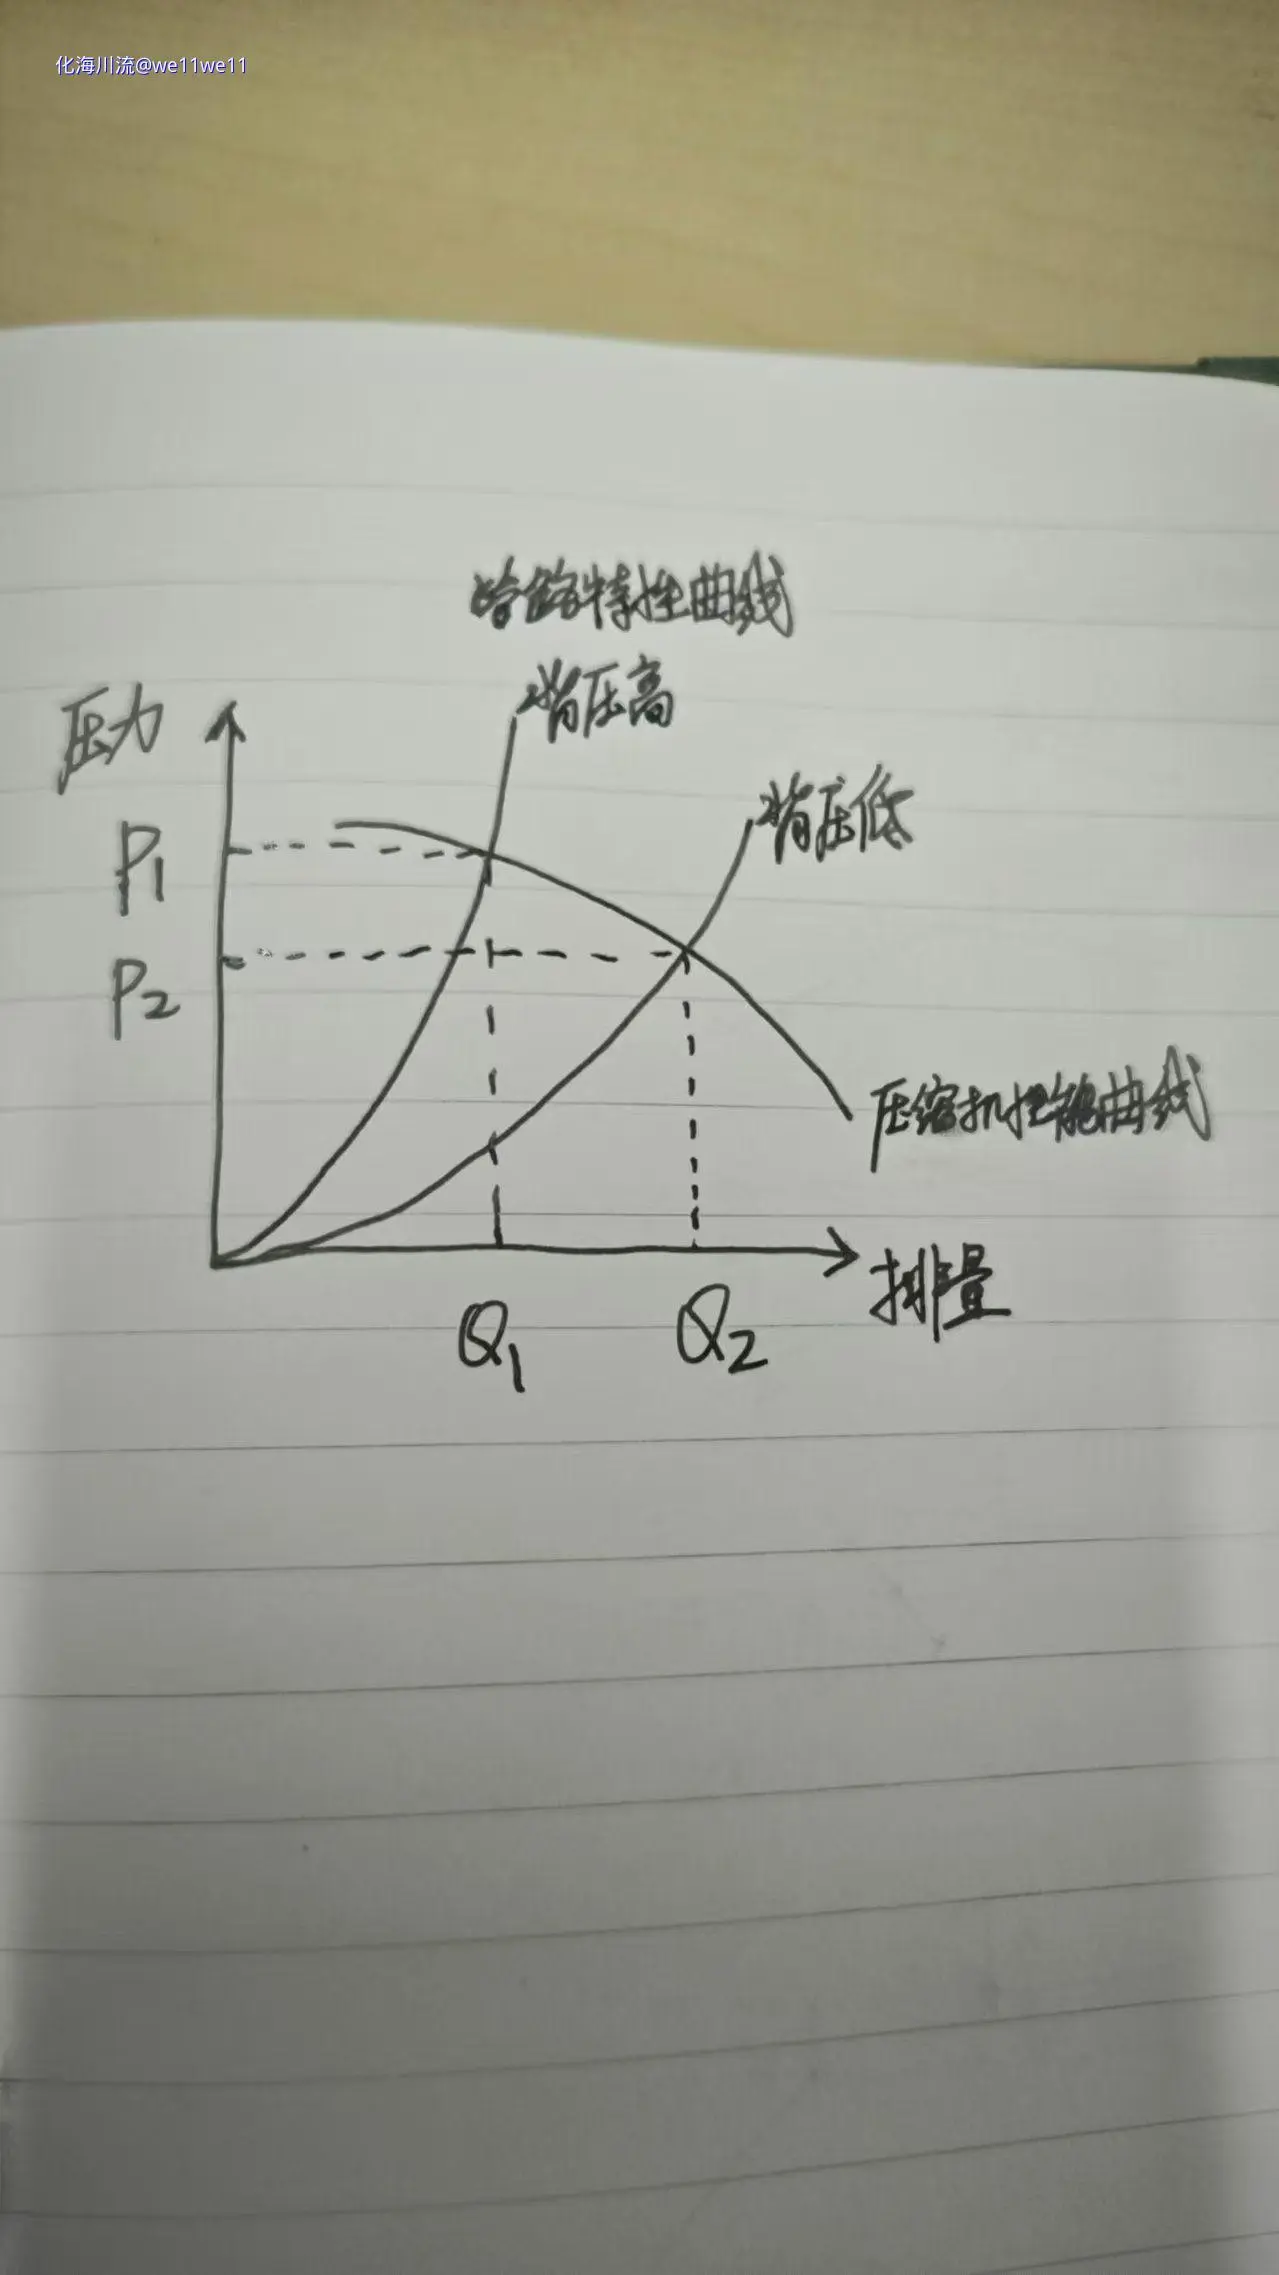 化海川流@we11we11
管路特性曲线
背压高
压力
背压低
P1
P2
压缩机性能曲线
排量
Q1
Q2